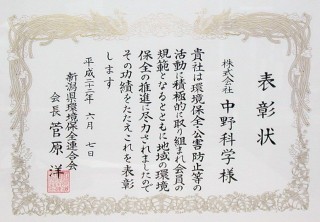 表彰状
株式会社 中野科学 様
貴社は環境保全・公害防止等の
活動に積極的に取り組まれ会員の
規範となるとともに地域の環境
保全の推進に尽力されましたので
その功績をたたえこれを表彰
します
平成二十二年 六月 七日
新潟県環境保全連合会
会長 菅原 洋